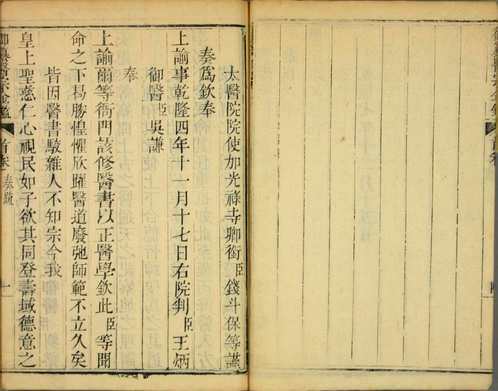 太醫院院使加光祿寺卿銜臣錢斗保等謹
奏為欽奉
上諭事乾隆四年十一月十七日右院判臣王炳
御醫臣吳謙
奉
上諭爾等衙門該修醫書以正醫學欽此臣等聞
命之下曷勝惶懼欣躍醫道廢弛師範不立久矣
皆因醫書駁雜人不知宗今我
皇上聖慈仁心視民如子欲其同登壽域德意之
御纂醫宗金鑑 首卷 奏疏 一